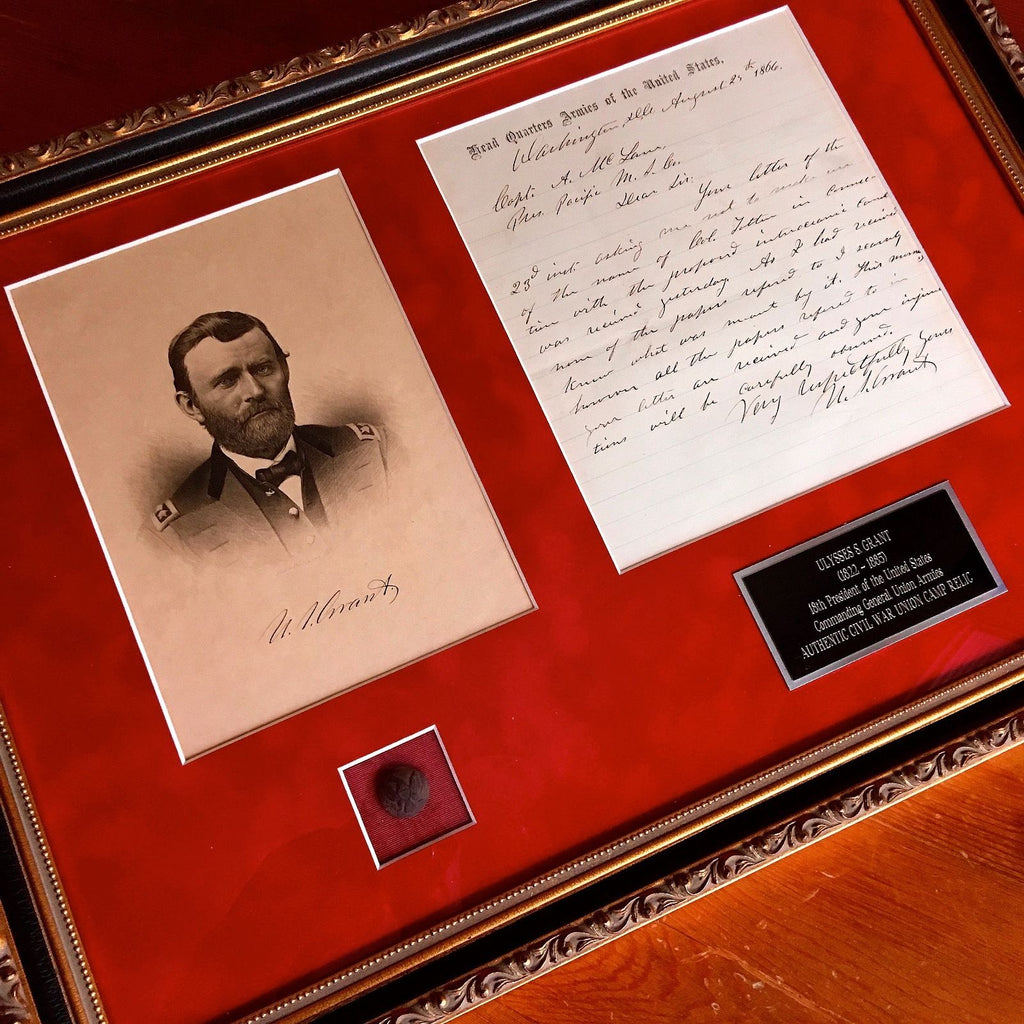 U. S. Grant
Head Quarters Armies of the United States,
Washington, August 25th 1866.
Capt. A. McLane,
Pres. Pacific M. S. Co.
Dear Sir:
Your letter of the
23d inst. asking me not to make use
of the name of Col. in connec-
tion with the proposed interoceanic Canal
was received yesterday. As I had received
none of the papers refered to I scarcely
knew what was meant by it. This morning
however all the papers refered to in
your letter are received and your injunc-
tions will be carefully observed.
Very respectfully yours
U. S. Grant
ULYSSES S. GRANT
(1822 – 1885)
18th President of the United States
Commanding General, Union Armies
AUTHENTIC CIVIL WAR UNION CAMP RELIC